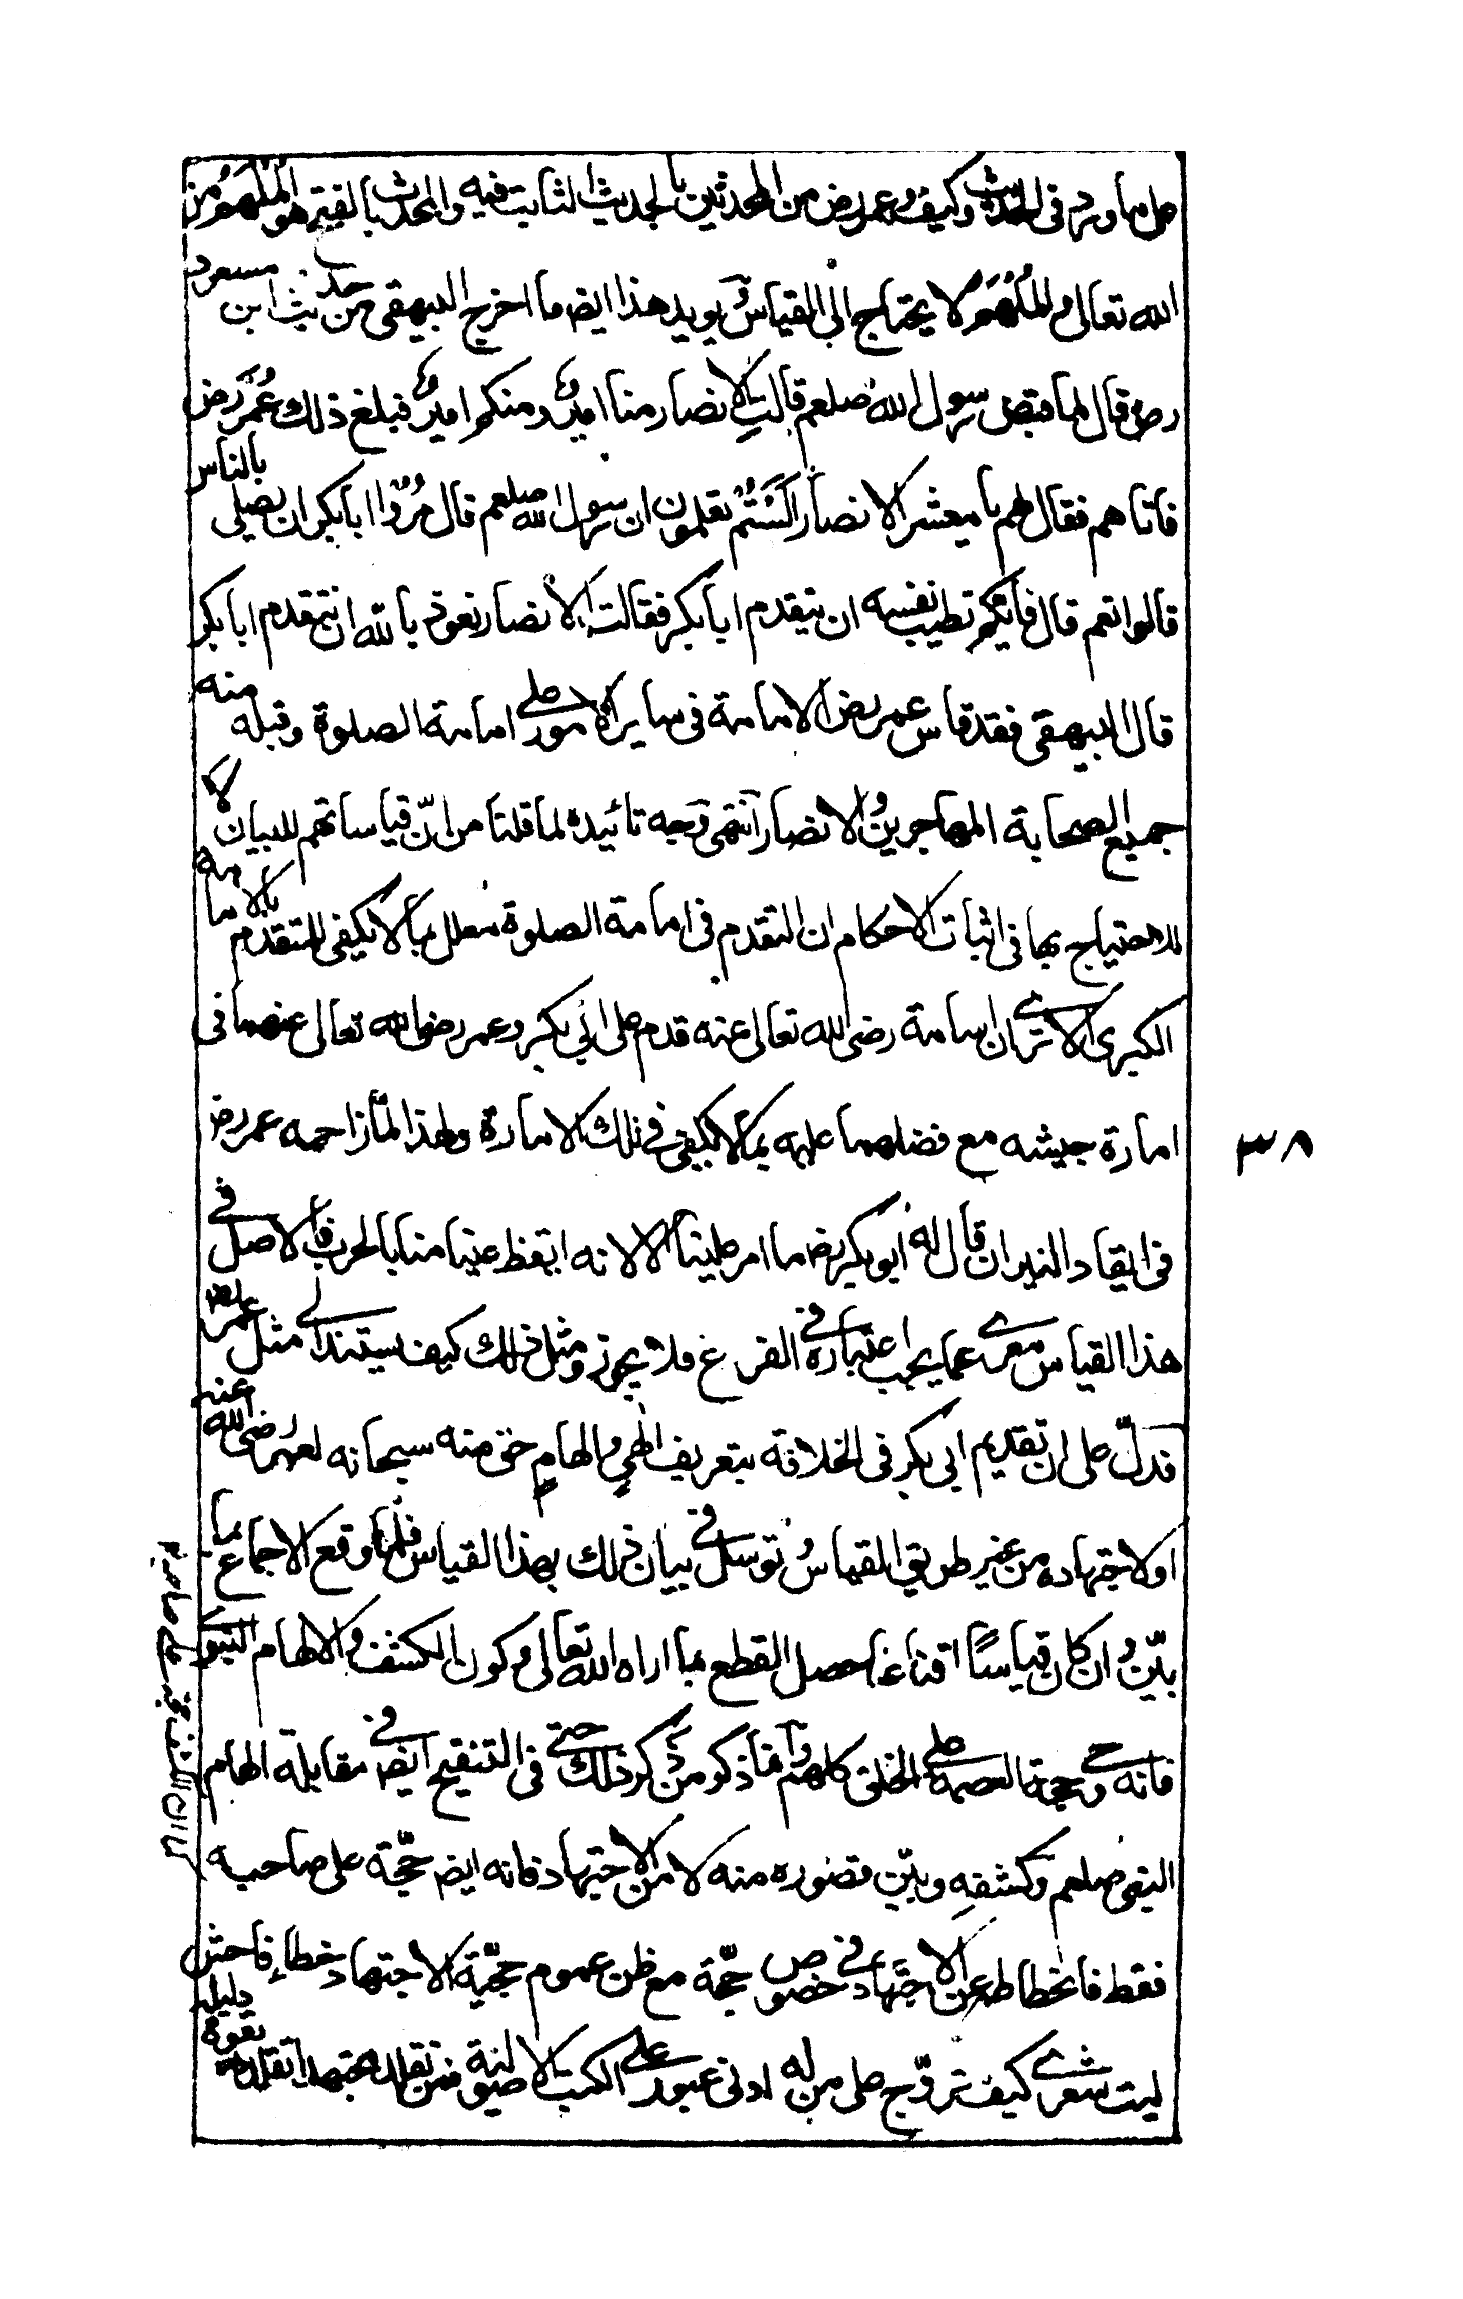 على ما ورد فى الحديث وكيف وعمر رض من المحدثين بالحديث الثابت فيه والمحدث بالفتح هو الملهم من
الله تعالى والملهم لا يحتاج الى القياس ويويد هذا ايض ما اخرج البيهقى من حديث ابن مسعود
رض قال لما قبض رسول الله صلعم قالت الانصار منا امير ومنكم امير فبلغ ذلك عمر رض
فاتاهم فقال لهم يا معشر الانصار الستم تعلمون ان رسول الله صلعم قال مروا ابا بكر ان يصلى بالناس
قالوا نعم قال فايكم تطيب نفسه ان يتقدم ابا بكر فقالت الانصار نعوذ بالله ان نتقدم ابا بكر
قال البيهقى فقد قاس عمر رض الامامة فى ساير الامور على امامة الصلوة وقبله منه
جميع الصحابة المهاجرين والانصار انتهى وجه تائيده لما قلنا من ان قياساتهم للبيان لا
للاحتياج بها فى اثبات الاحكام ان التقدم فى امامة الصلوة معلل بما لا يكفى للتقدم بالامامة
الكبرى الا ترى ان اسامة رضى الله تعالى عنه قدم على ابي بكر وعمر رضى الله تعالى عنهما فى
امارة جيشه مع فضلهما عليه بما لا يكفى فى تلك الامارة ولهذا لما زاحمه عمر رض
فى ايقاد النيران قال له ابو بكر رض ما امر علينا الا لانه ايقظ عينا منا بالحرب فالاصل فى
هذا القياس معرى عما يجب اعتباره فى الفرع فلا يجوز ومثل ذلك كيف يستند الى مثل عمر رض
فدل على ان تقديم ابى بكر فى الخلافة بتعريف الهي والهام حق منه سبحانه لعمر رضى الله عنه
او لاجتهاده من غير طريق القياس وتوسل فى بيان ذلك بهذا القياس فلما وقع الاجماع بما
بين وان كان قياسا اقناعيا حصل القطع بما اراه الله تعالى وكون الكشف والالهام النبوي
فانه وحى وحجة لعصمة على الخلق كلهم وانما ذكر من ذكر ذلك حتى فى التنقيح ايض فى مقابلة الهام
النبى صلعم وكشفه وبين قصوره منه لا من الاجتهاد فانه ايض حجة على صاحبه
فقط فانحطاطه عن الاجتهاد فى خصوص حجة مع ظن عموم حجية الاجتهاد خطاء فاحش
ليت شعرى كيف تروج على من له ادنى عبور على الكتب الاصولية فمن تقلد مجتهدا تقلده